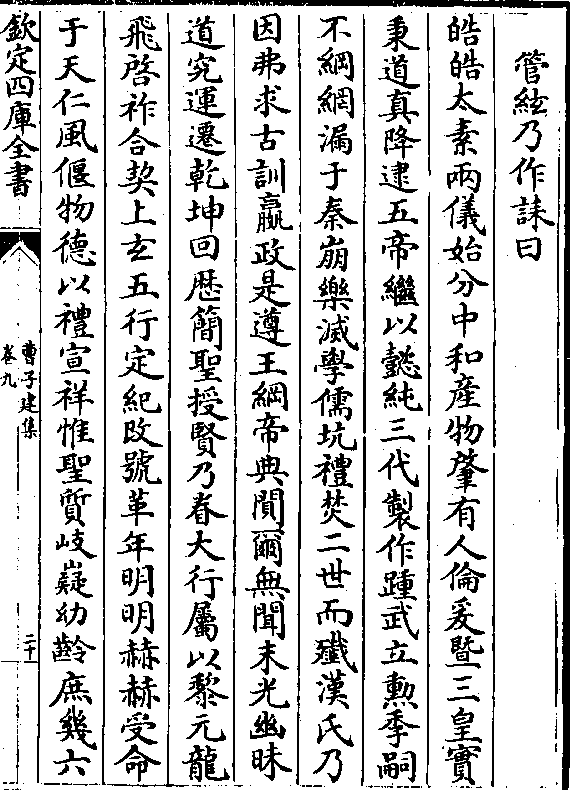 管絃乃作誄曰
皓皓太素兩儀始分中和産物肇有人倫爰暨三皇實
秉道真降逮五帝繼以懿純三代製作踵武立勲季嗣
不綱網漏于秦崩樂滅學儒坑禮焚二世而殱漢氏乃
因弗求古訓嬴政是遵王綱帝典闃爾無聞末光幽昧
道究運遷乾坤回厯簡聖授賢乃眷大行屬以黎元龍
飛啓祚合契上玄五行定紀改號革年明明赫赫受命
于天仁風偃物德以禮宣祥惟聖質岐嶷幼齡庶幾六
欽定四庫全書
曹子建集
卷九
二十